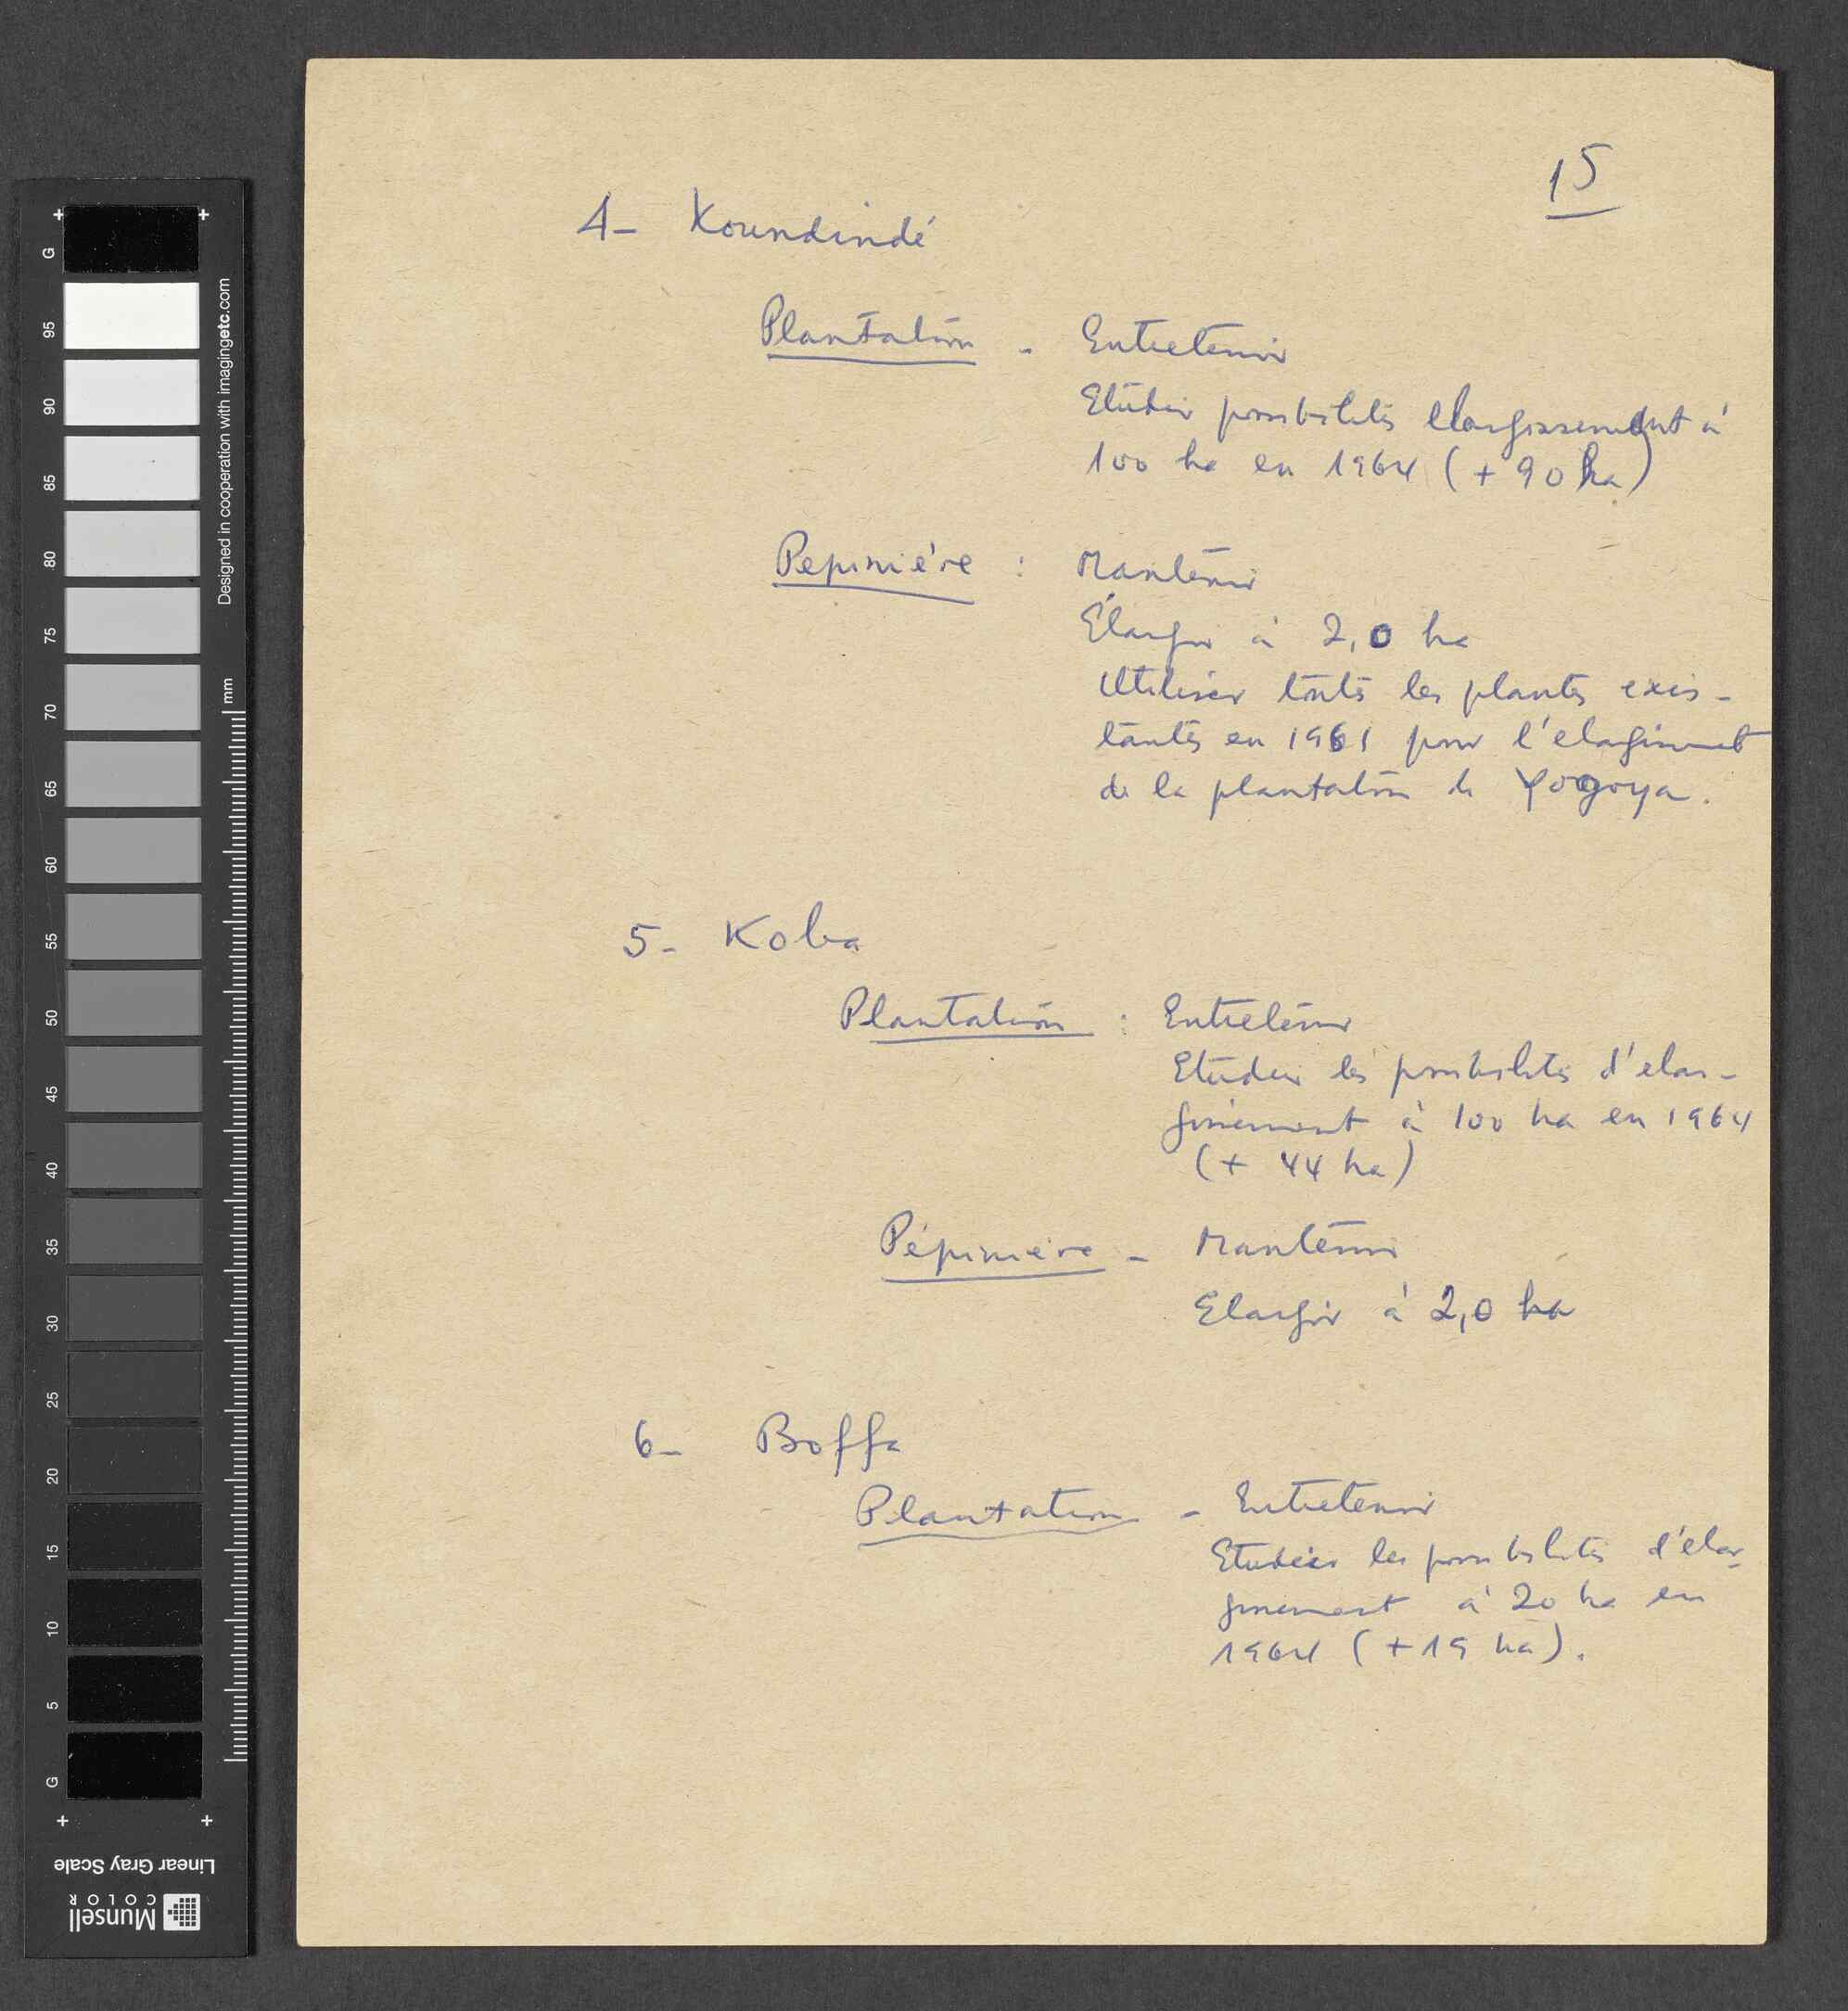 15
4- Koundindé
Plantation - Entretenir
Etudier possibilités élargissement à
100 ha en 1964 (+ 90 ha)
Pepinière : Maintenir
Élargir à 2,0 ha
Utiliser toutes les plantes exis-
tantes en 1961 pour l'elargissement
de la plantation de Yogoya.
5- Koba
Plantation : Entretenir
Etudier les possibilités d'elar-
gissement à 100 ha en 1964
(+ 44 ha)
Pépinière - Maintenir
Elargir à 2,0 ha
6- Boffa
Plantation - Entretenir
Etudier les possibilités d'élar-
gissement à 20 ha en
1964 (+ 19 ha).
G
95
90
85
80
75
70
65
60
55
50
45
40
35
30
25
20
15
10
5
G
Designed in cooperation with imagingetc.com
mm
Linear Gray Scale
Munsell
COLOR